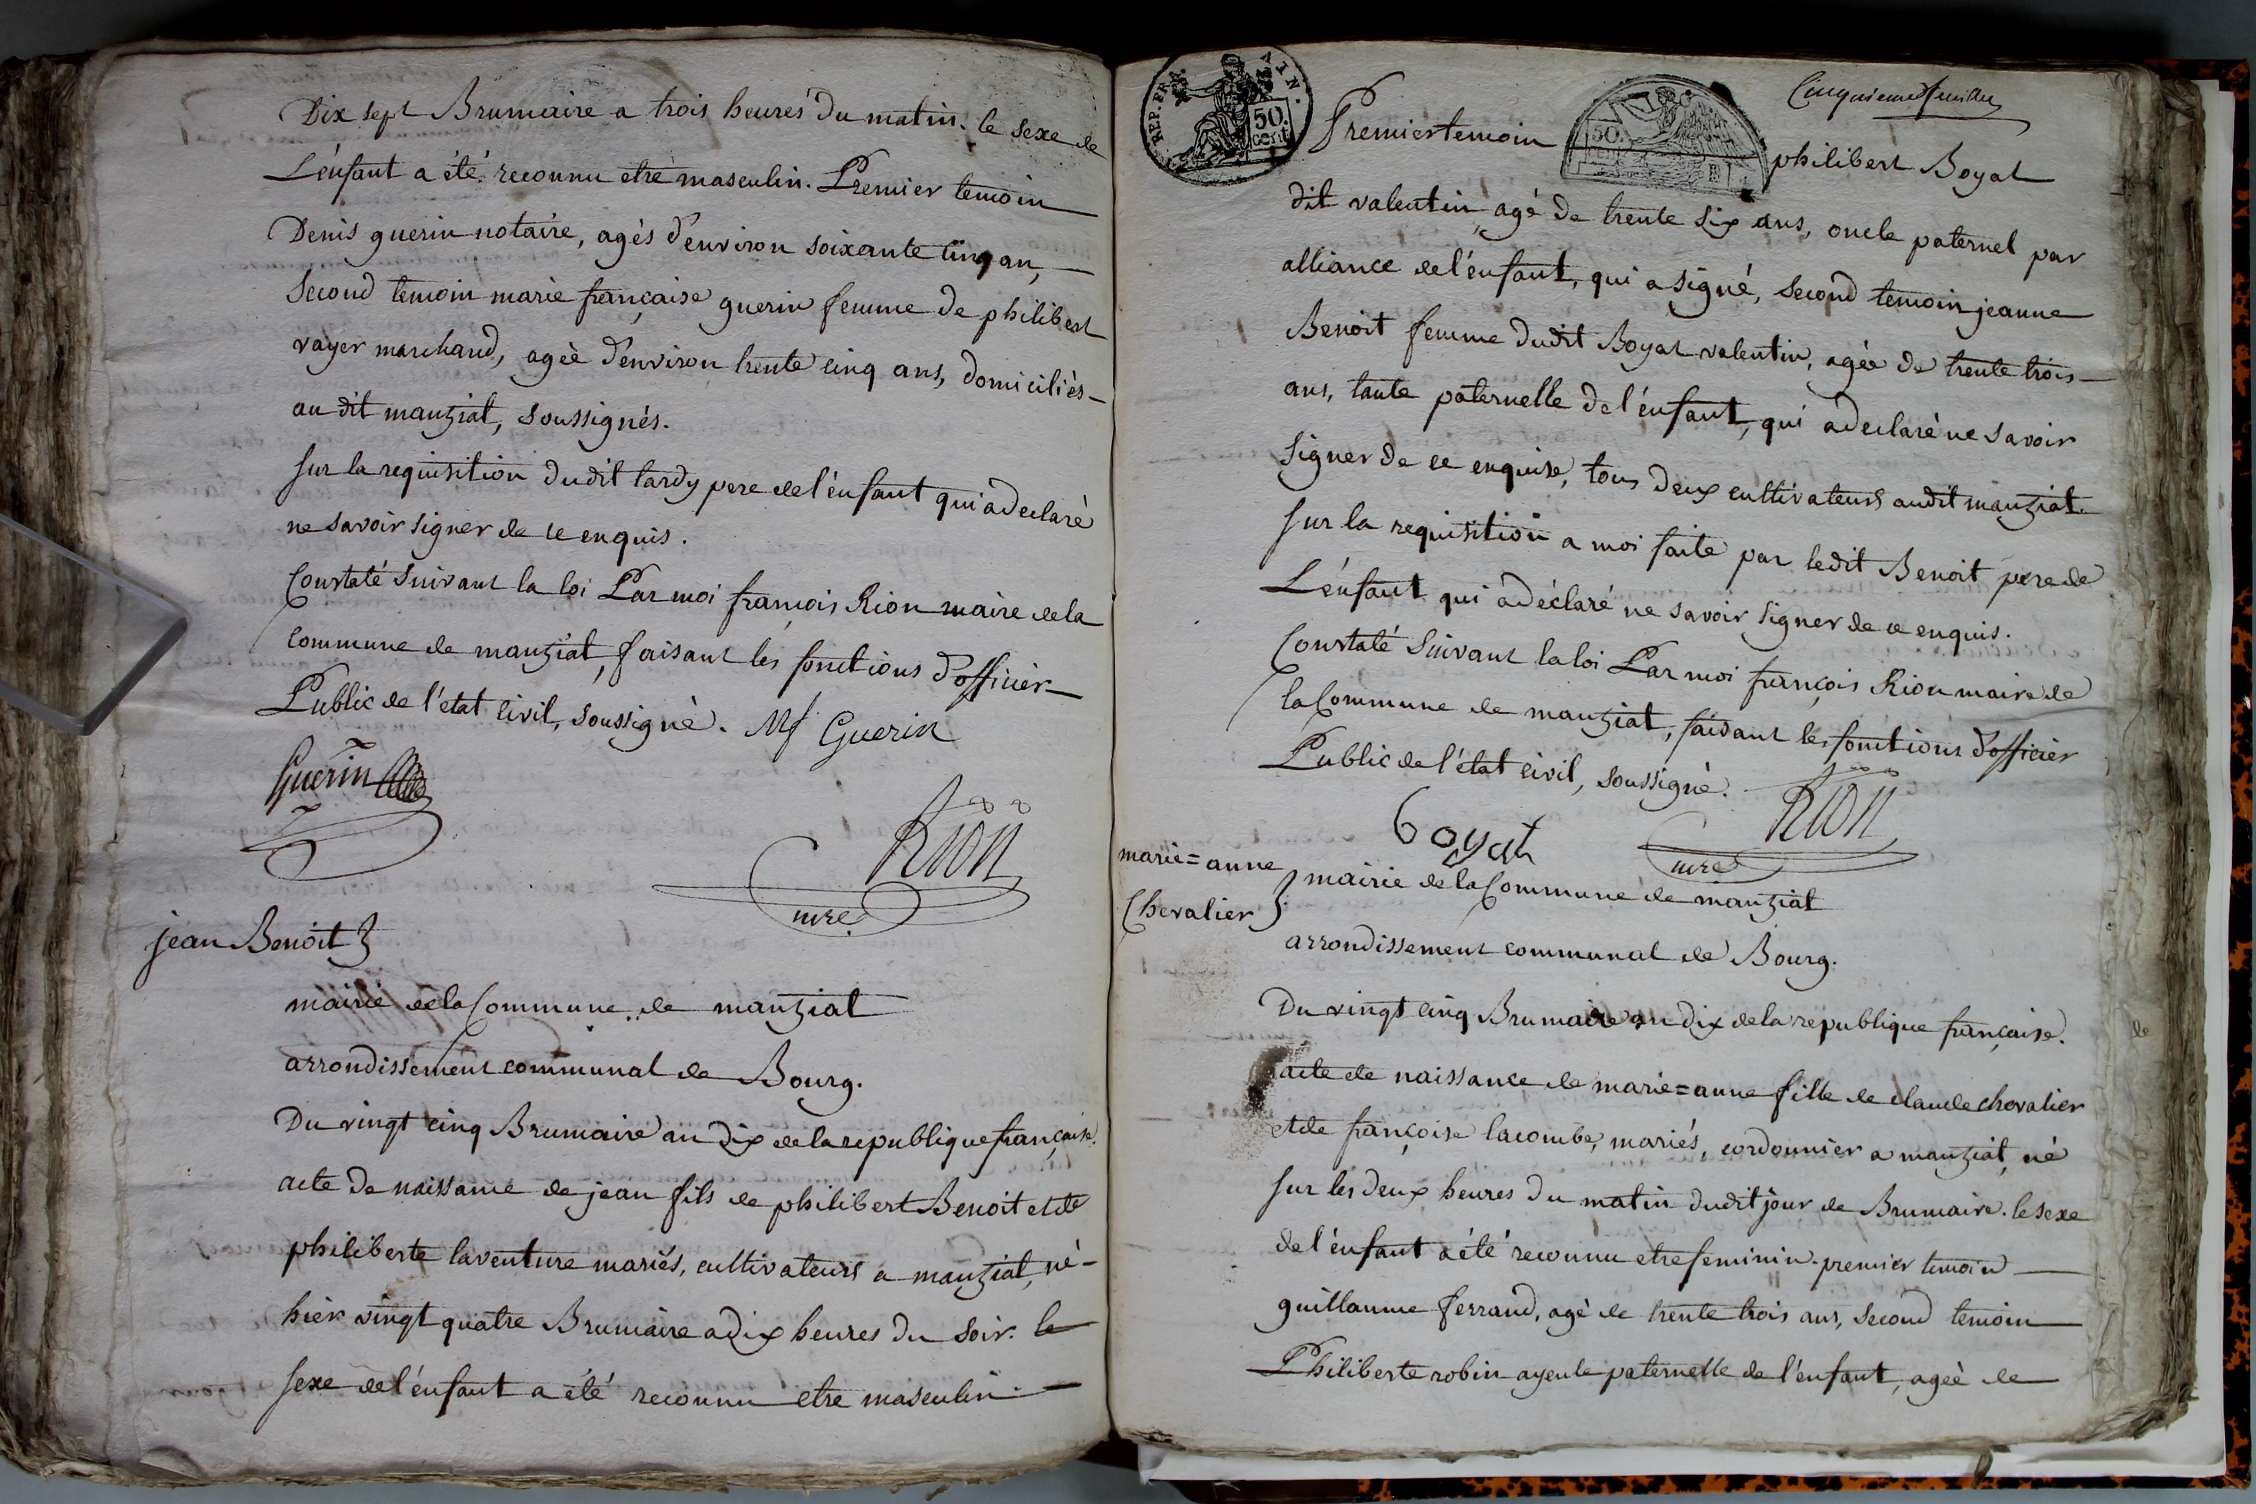 Dix sept Brumaire a trois heures du matin. le sexe de
L'énfant a été reconnu etre masculin. Premier temoin
Denis guerin notaire, agés d'environ soixante cinq an,
Second temoin marie française guerin femme de philibert
vayer marchand, agèe d'environ trente cinq ans, domiciliès
au dit manziat, soussignés.
sur la requisition dudit tardy pere de l'énfant qui a declaré
ne savoir signer de ce enquis.
Constaté suivant la loi Par moi françois Rion maire de la
Commune de manziat, faisant les fonctions d'officier
Public de l'état Civil, soussigné. Mf Guerin
Guerin
Rion
mre
jean Benoit
mairie de la Commune de manziat
arrondissement communal de Bourg.
Du vingt cinq Brumaire an dix de la republique française.
acte de naissance de jean fils de philibert Benoit et de
philiberte laventure mariés, cultivateurs a manziat, né
hièr vingt quatre Brumaire a dix heures du soir. le
sexe de l'énfant a été reconnu etre masculin.
REP. FRA.
50.
cent.
50.
Cinquieme feuillet
Premier temoin philibert Boyat
dit valentin, agé de trente six ans, oncle paternel par
alliance de l'énfant, qui a signé, second temoin jeanne
Benoit femme dudit Boyat valentin, agée de trente trois
ans, tante paternelle de l'énfant, qui a declaré ne savoir
signer de ce enquise, tous deux cultivateurs audit manziat.
sur la requisition a moi faite par ledit Benoit pere de
L'énfant qui a déclaré ne savoir signer de ce enquis.
Constaté suivant la loi Par moi françois Rion maire de
la Commune de manziat, faisant les fonctions d'officier
Public de l'état Civil, soussigné.
Boyat
Rion
mre
marie=anne
Chevalier
mairie de la Commune de manziat
arrondissement communal de Bourg.
Du vingt cinq Brumaire an dix de la republique française.
acte de naissance de marie=anne fille de claude chevalier
et de françoise lacombe, mariés, cordonnier a manziat, né
sur les deux heures du matin dudit jour de Brumaire. le sexe
de l'énfant a été reconnu etre feminin. premier temoin
guillaume ferrand, agé de trente trois ans, second temoin
Philiberte robin ayeule paternelle de l'énfant, ageè de